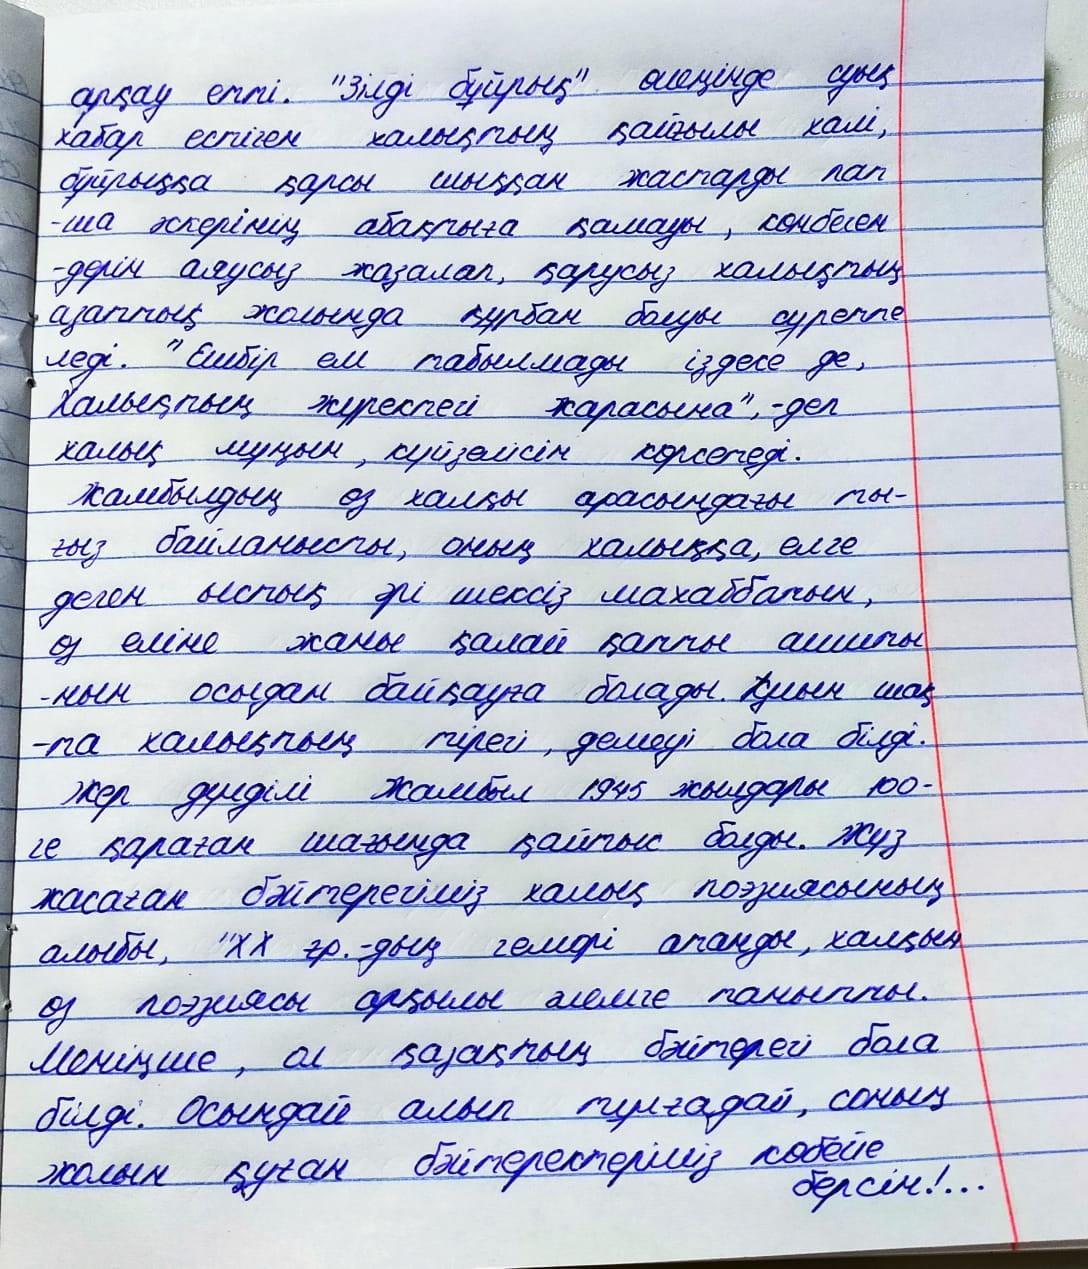 арқау етті. "Зілді бұйрық" өлеңінде суық
хабар естіген халықтың қайғылы халі,
бұйрыққа қарсы шыққан жастарды пат
-ша әскерінің абақтыға қамауы, көнбеген
-дерін аяусыз жазалап, қарусыз халықтың
азаттық жолында құрбан болуы суретте
леді. "Ешбір ем табылмады іздесе де,
Халықтың жүректегі жарасына", -деп
халық мұңын, күйзелісін көрсетеді.
Жамбылдың өз халқы арасындағы ты-
ғыз байланысты, оның халыққа, елге
деген ыстық әрі шексіз махаббатын,
өз еліне жаны қалай қатты ашиты
-нын осыдан байқауға болады. Қиын шақ
-та халықтың тірегі, демеуі бола білді.
Жер дүлділі Жамбыл 1945 жылдары 100-
ге қараған шағында қайтыс болды. Жүз
жасаған бәйтерегіміз халық поэзиясының
алыбы, "XX ғр.-дың гемері атанды, халқын
өз поэзиясы арқылы әлемге танытты.
Меніңше, ол қазақтың бәйтерегі бола
білді. Осындай алып тұлғадай, соның
жолын қуған бәйтеректеріміз көбейе
берсін!...